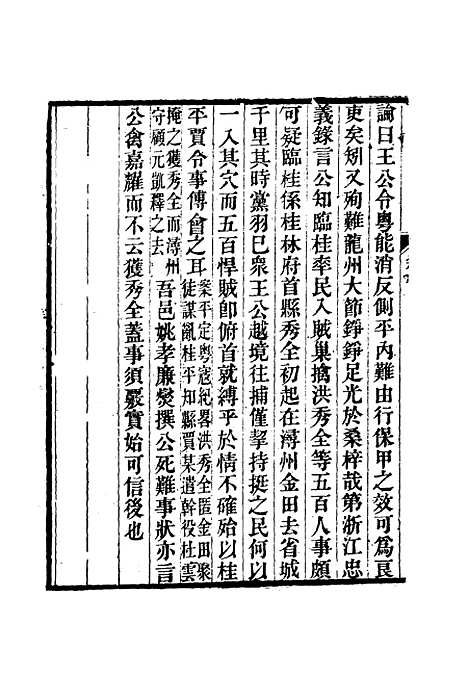 論曰王公令粵能消反側平內難由行保甲之效可爲良
吏矣矧又殉難龍州大節錚錚足光於桑梓哉第浙江忠
義錄言公知臨桂率民入賊巢擒洪秀全等五百人事頗
可疑臨桂係桂林府首縣秀全初起在潯州金田去省城
千里其時黨羽已衆王公越境往捕僅挈持挺之民何以
一入其穴而五百悍賊卽俯首就縛乎於情不確殆以桂
平賈令事傳會之耳案平定粵寇紀畧洪秀全匿金田聚
徒謀亂桂平知縣賈某遣幹役杜雲
掩之獲秀全而潯州
守顧元凱釋之去吾邑姚孝廉燮撰公死難事狀亦言
公禽嘉耀而不云獲秀全蓋事須覈實始可信後也